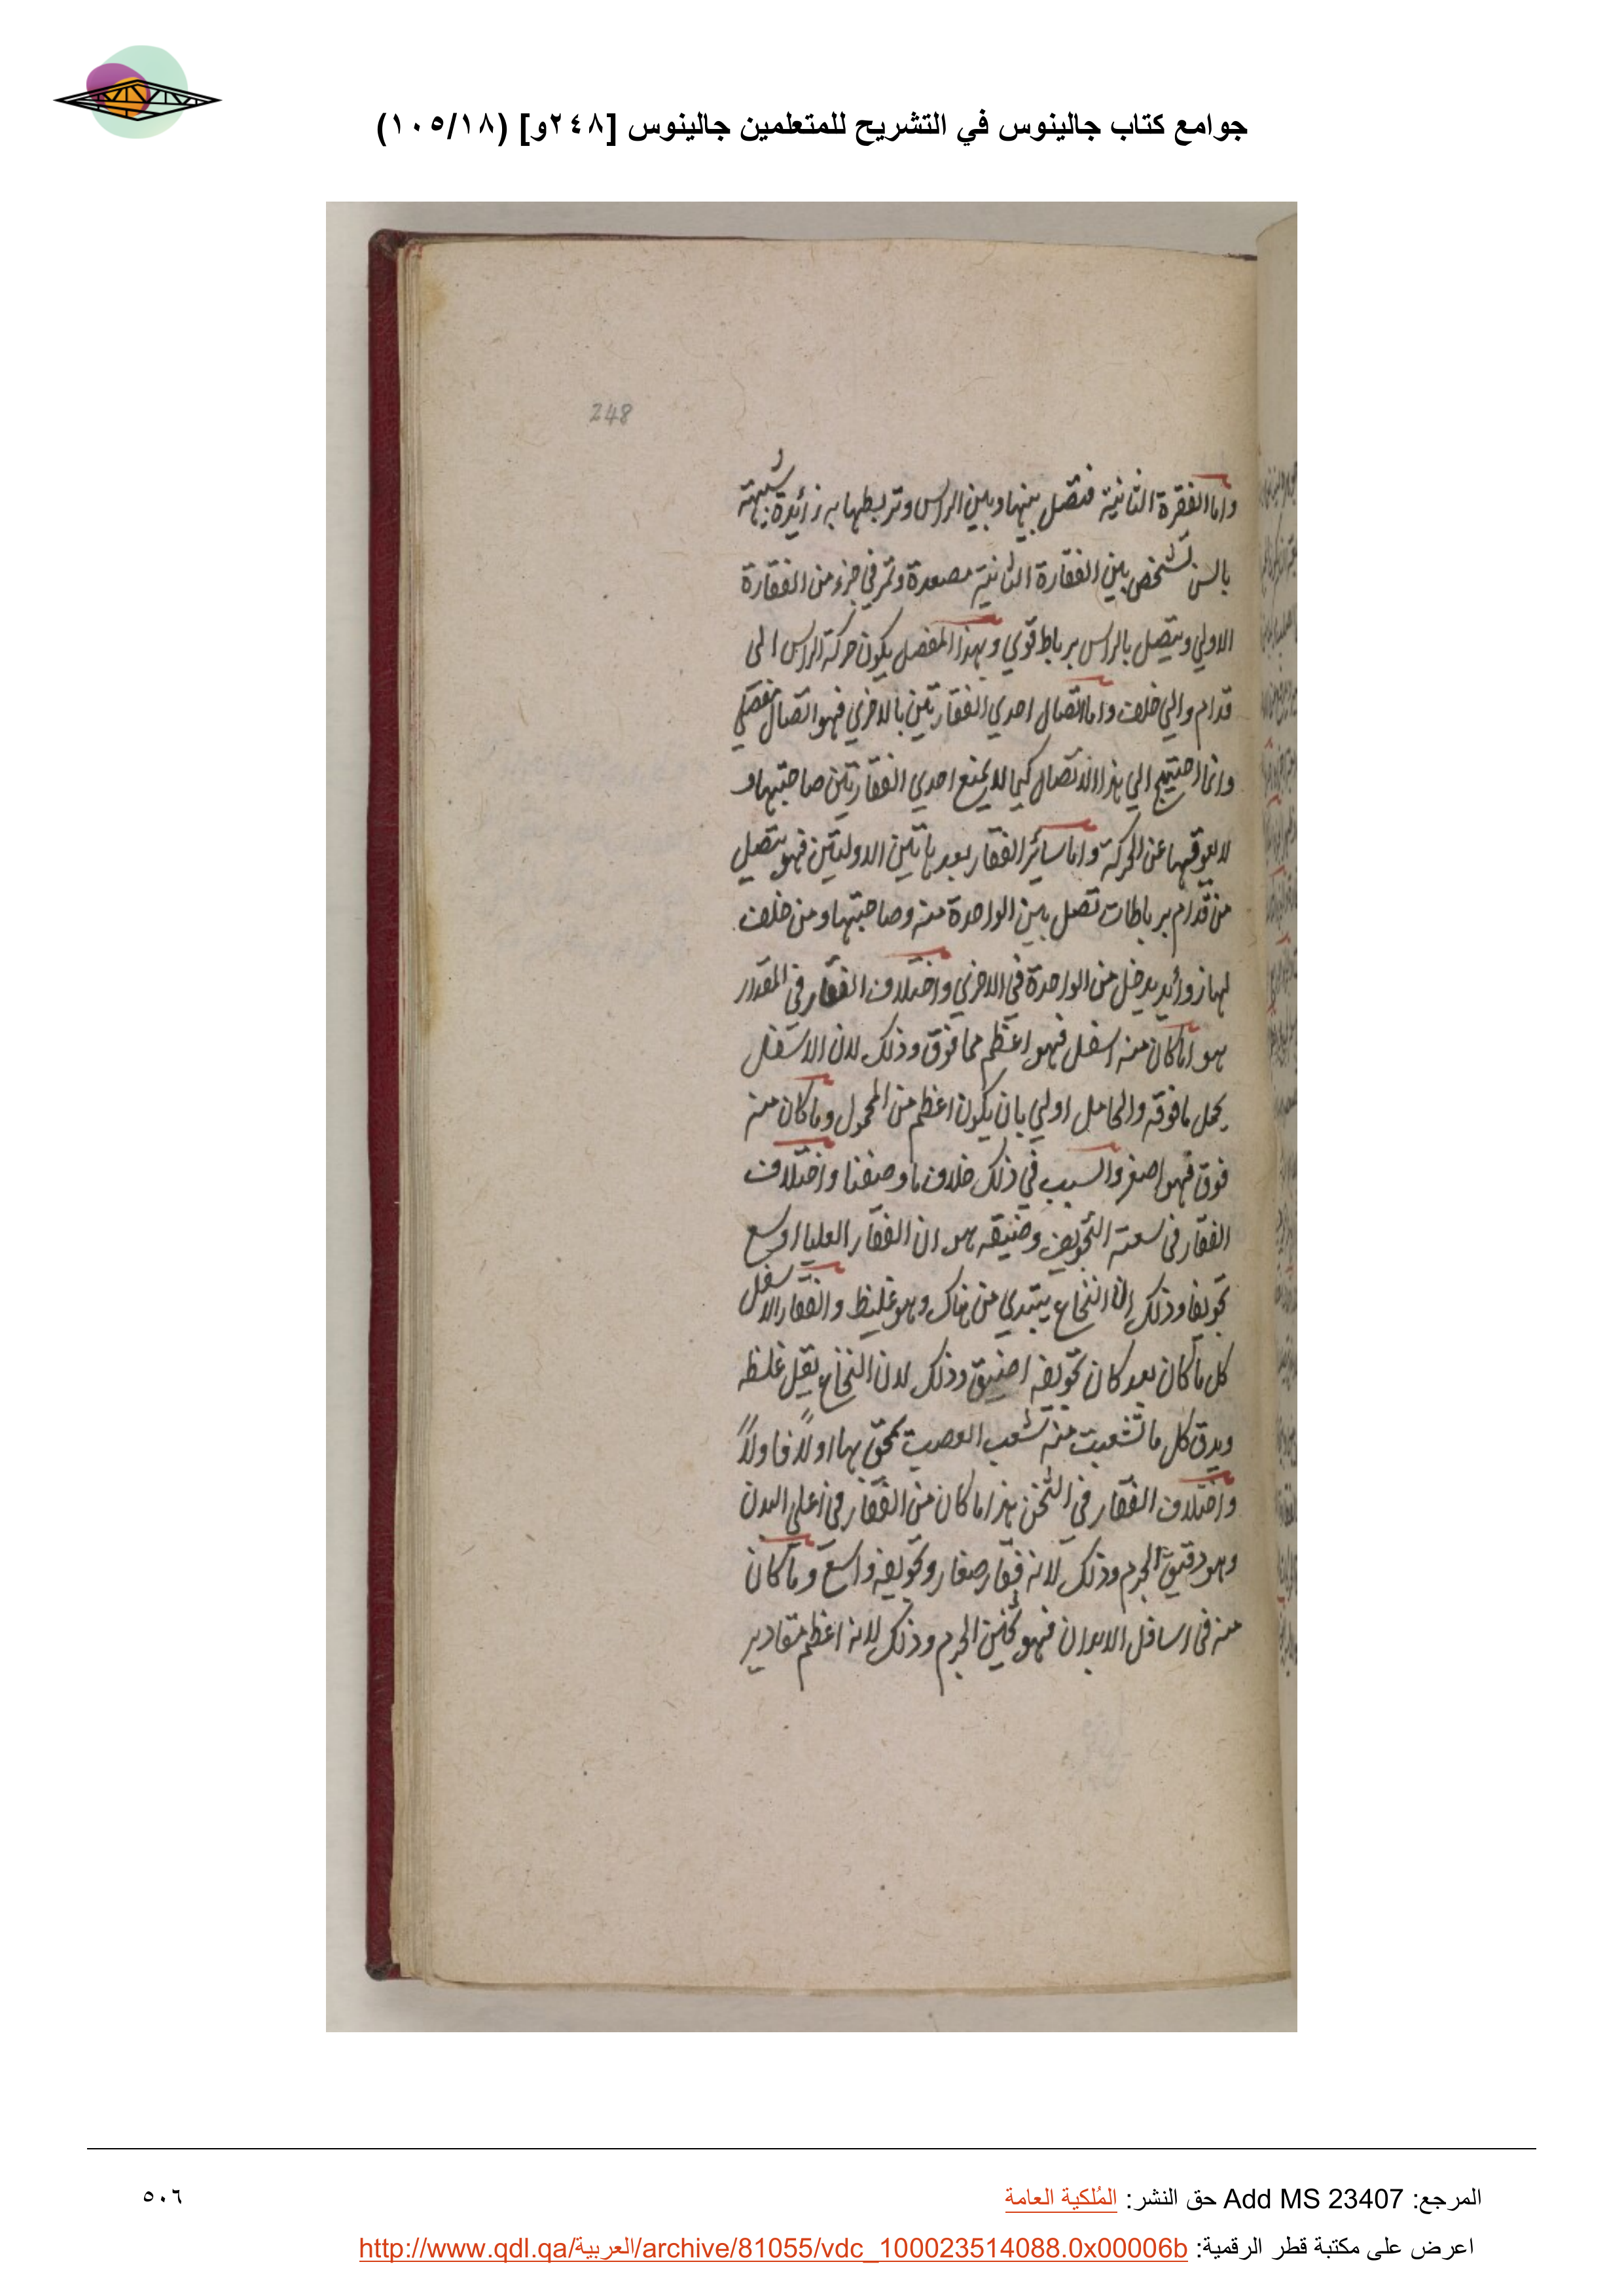 جوامع كتاب جالينوس في التشريح للمتعلمين جالينوس [٢٤٨و] (١٠٥/١٨)
248
واما الفقرة الثانية فتصل بينها وبين الراس وتربطها به زائدة شبيهة
بالسن تشخص بين الفقارة الثانية مصعدة وتمر في جزء من الفقارة
الاولي ويتصل بالراس برباط قوي وبهذا المفصل يكون حركة الراس الى
قدام والي خلف واما اتصال احدي الفقارتين بالاخري فهو اتصال مفصلي
وانما احتيج الي هذا الاتصال كيما لا يمنع احدي الفقارتين صاحبتها و
لا يعوقها عن الحركة واما سائر الفقار بعد هاتين الاوليتين فهو يتصل
من قدام برباطات تصل بين الواحدة منه وصاحبتها ومن خلف
لها زوائد يدخل من الواحدة في الاخري واختلاف الفقار في المقدار
هو اما كان منه اسفل فهو اعظم مما فوق وذلك لان الاسفل
يحمل ما فوقه والحامل اولي بان يكون اعظم من المحمول وما كان منه
فوق فهو اصغر والسبب في ذلك خلاف ما وصفنا واختلاف
الفقار فى سعته التجويف وضيقه هو ان الفقار العليا اوسع
تجويفا وذلك ان النخاع يبتدي من هناك وهو غليظ والفقار الاسفل
كل ما كان بعد كان تجويفه اضيق وذلك لان النخاع يقل غلظه
ويدق كل ما تشعبت منه شعب العصب تمحق بها اولا فاولا
واختلاف الفقار فى الثخن هذا ما كان من الفقار في اعلي البدن
وهو دقيق الجرم وذلك لانه فقار صغار وتجويفه واسع وما كان
منه فى اسافل الابدان فهو ثخين الجرم وذلك لانه اعظم مقادير
المرجع: Add MS 23407 حق النشر: المُلكية العامة
٥٠٦
اعرض على مكتبة قطر الرقمية: http://www.qdl.qa/العربية/archive/81055/vdc_100023514088.0x00006b